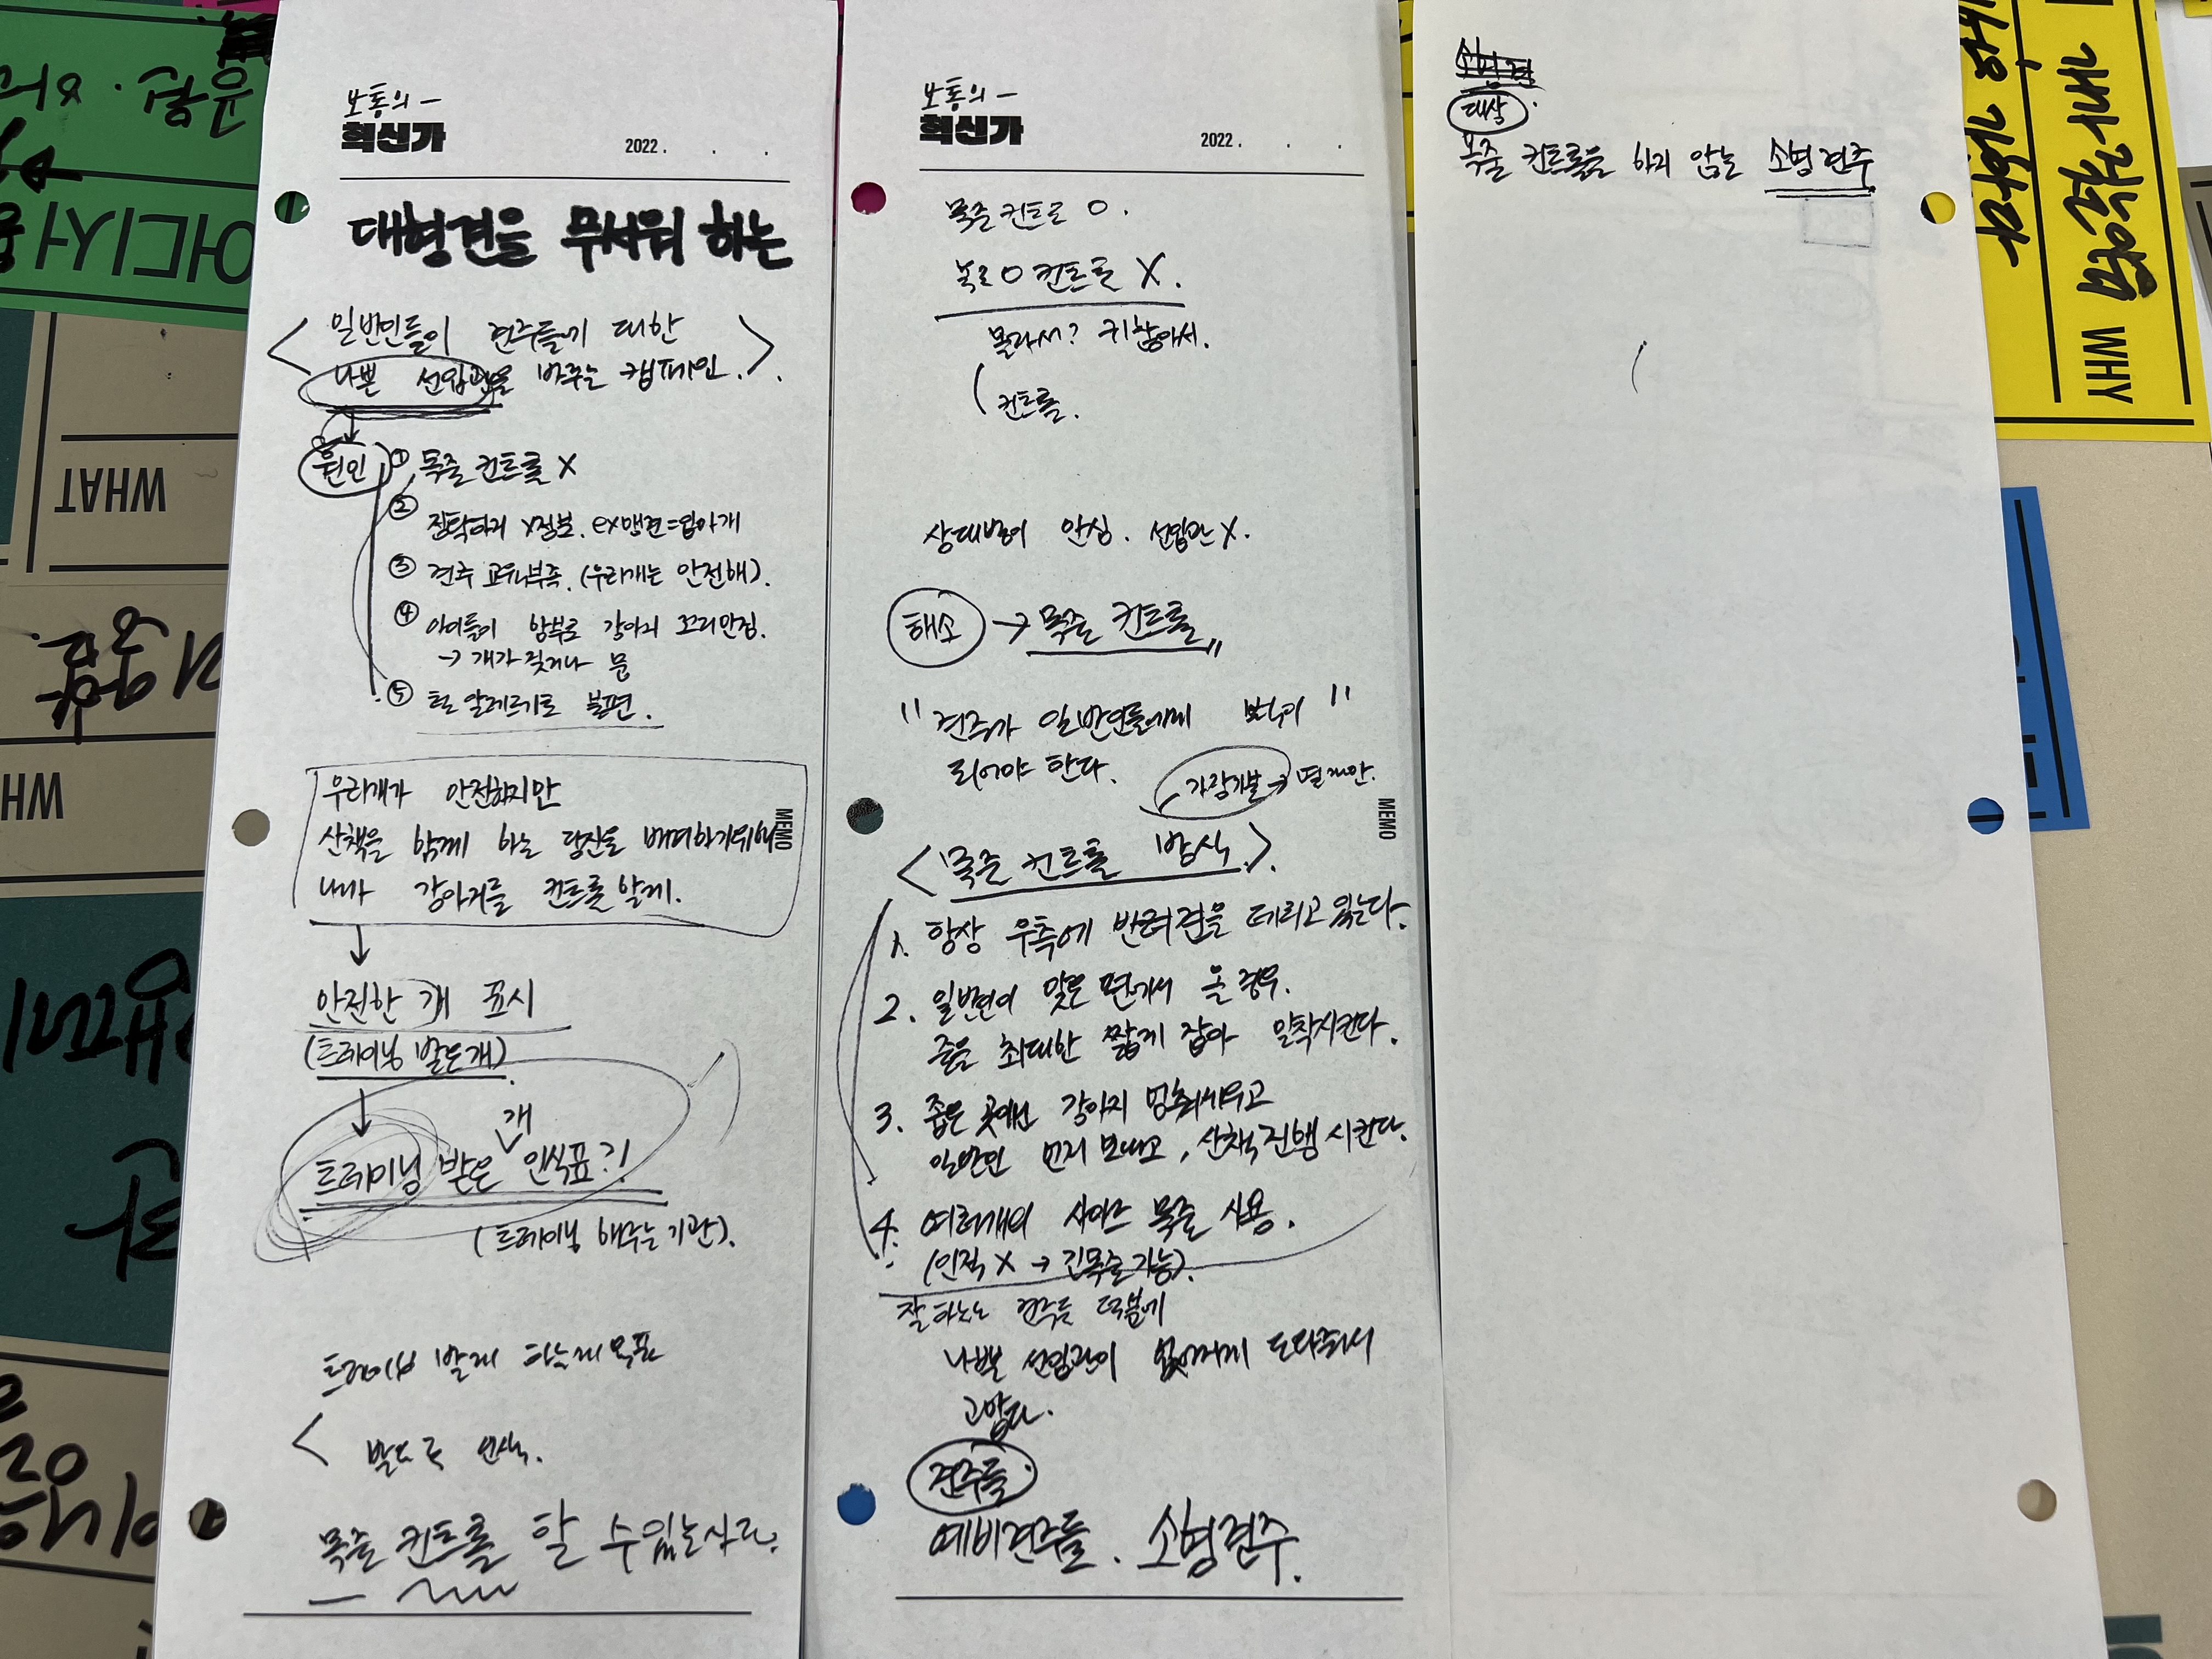 보통의 –
혁신가
2022 . . .
대형견을 무서워 하는
< 일반인들이 견주들에 대한
나쁜 선입관을 바꾸는 캠페인. >.
원인 ① 목줄 컨트롤 X
②
정확하지 X정보. ex맹견=입마개
③ 견주 교육부족. (우리개는 안전해).
④ 아이들이 함부로 강아지 꼬리만짐.
→ 개가 짖거나 뭄
⑤ 털 알레르기로 불편.
우리개가 안전하지만
산책을 함께 하는 당신을 배려하기위해
내가 강아지를 컨트롤 할게.
MEMO
↓
안전한 개 표시
(트레이닝 받은개).
↓
개
트레이닝 받은 ∨ 인식표?!
(트레이닝 해주는 기관).
트레이닝 받게 하는게 목표
<
목줄 컨트롤 할 수있는사람.
보통의 –
혁신가
2022 . . .
목줄 컨트롤 O.
목줄 O 컨트롤 X.
몰라서? 귀찮아서.
( 컨트롤.
상대방이 안심. 선입관 X.
해소 → 목줄 컨트롤
" 견주가 일반인들에게 "
되어야 한다.
MEMO
< 목줄 컨트롤 방식. >.
1. 항상 우측에 반려견을 데리고 있는다.
2. 일반인이 맞은 편에서 올 경우.
줄을 최대한 짧게 잡아 밀착시킨다.
3. 좁은 곳에선 강아지 멈춰세우고
일반인 먼저 보내고, 산책 진행 시킨다.
4. 여러개의 사이즈 목줄 사용.
(인적 X → 긴목줄 가능).
잘하는 견주들 덕분에
나쁜 선입관이 없어지게 도와줘서
고맙다.
견주들.
예비견주들. 소형견주.
소형견
대상.
목줄 컨트롤을 하지 않는 소형견주
어디서
WHAT
WHY